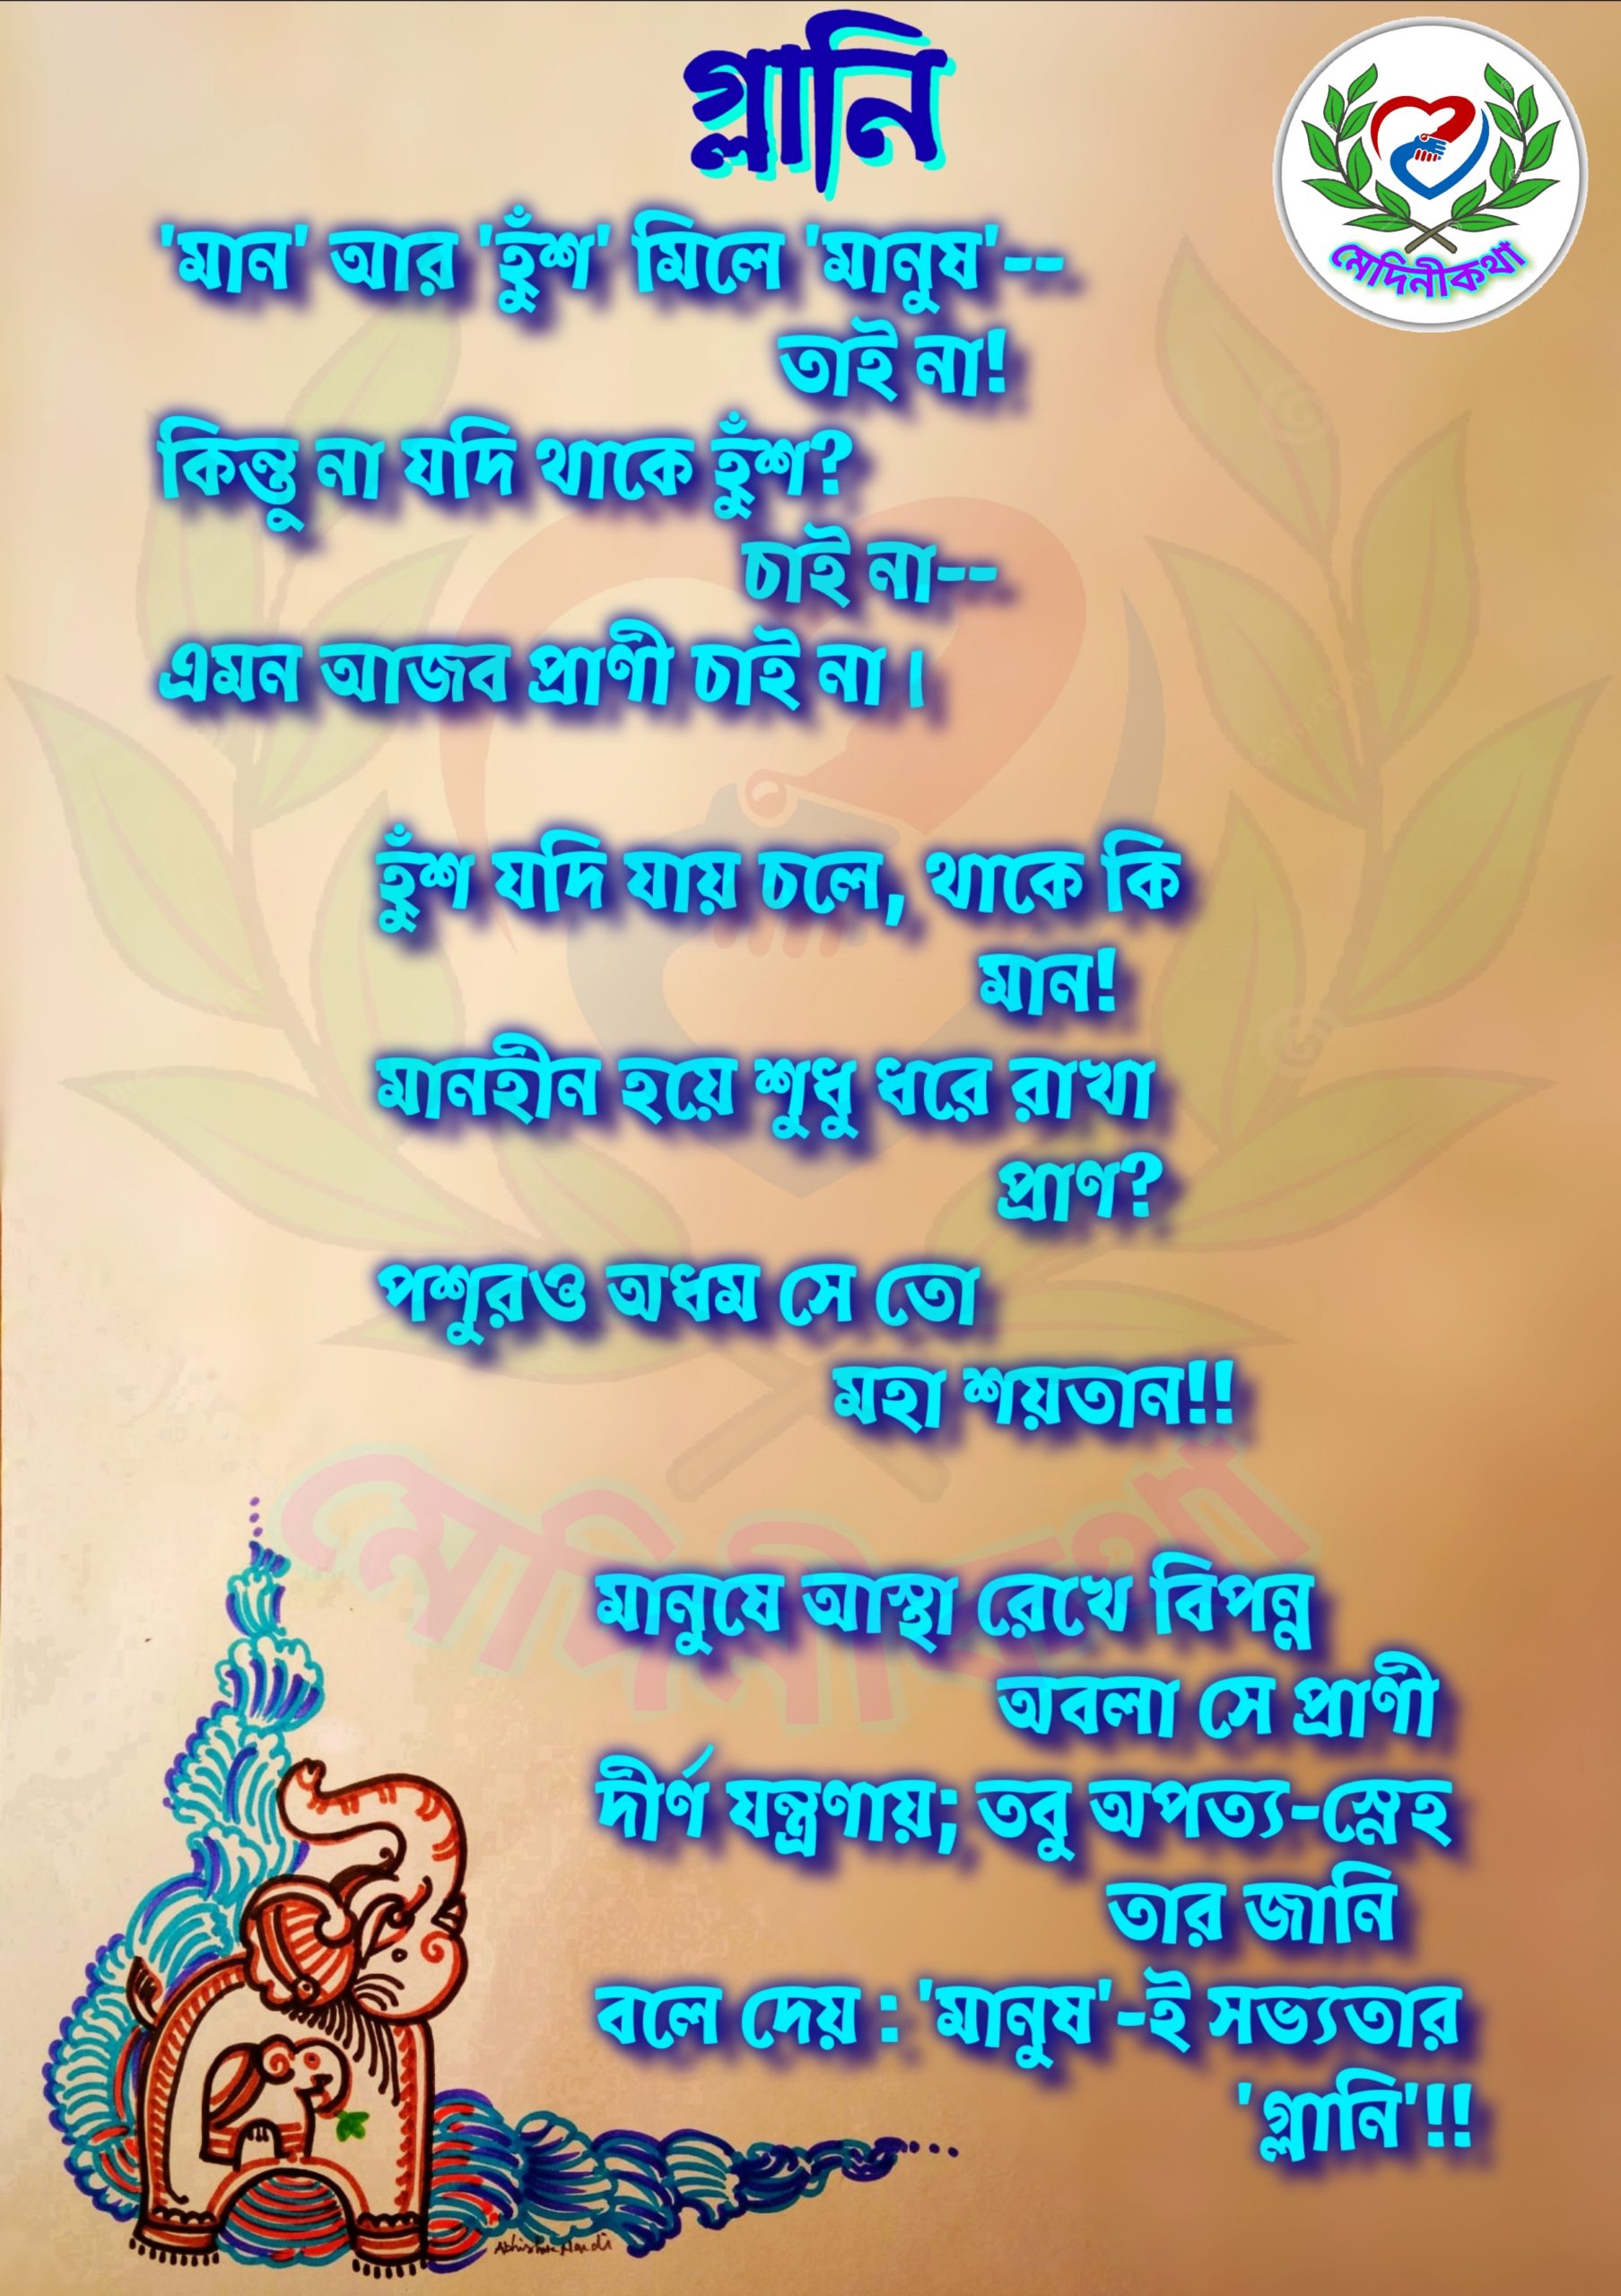 গ্লানি
মেদিনীকথা
'মান' আর 'হুঁশ' মিলে 'মানুষ'--
তাই না!
কিন্তু না যদি থাকে হুঁশ?
চাই না--
এমন আজব প্রাণী চাই না।
হুঁশ যদি যায় চলে, থাকে কি
মান!
মানহীন হয়ে শুধু ধরে রাখা
প্রাণ?
পশুরও অধম সে তো
মহা শয়তান!!
মেদিনীকথা
মানুষে আস্থা রেখে বিপন্ন
অবলা সে প্রাণী
দীর্ণ যন্ত্রণায়; তবু অপত্য-স্নেহ
তার জানি
বলে দেয় : 'মানুষ'-ই সভ্যতার
'গ্লানি'!!